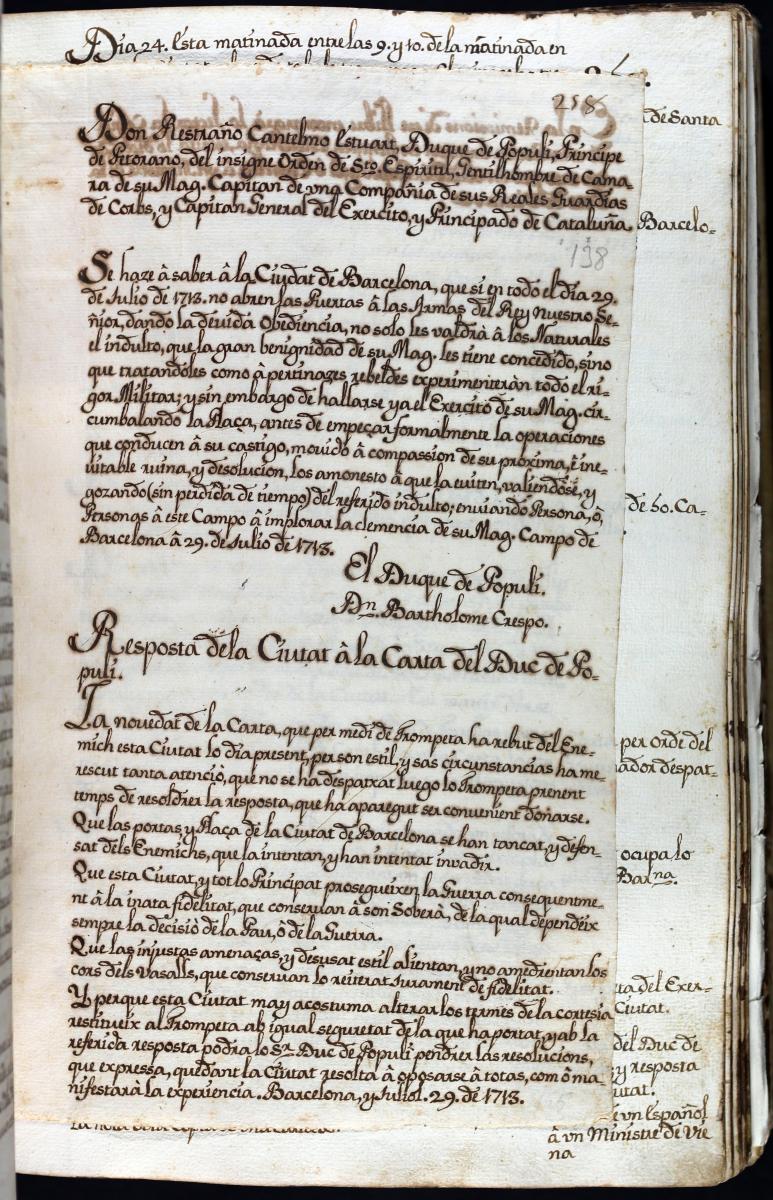 Dia 24. Esta matinada entre las 9. y 10. de la matinada en
258
Don Restraño Cantelmo Estuart, Duque de Populi, Principe
de Petorano, del insigne Orden de Sto. Espiritu, Gentilhombre de Cama-
ra de su Mag. Capitan de vna Compañia de sus Reales Guardias
de Corbs, y Capitan General del Exercito, y Principado de Cataluña.
138
Se haze â saber â la Ciudat de Barcelona, que si en todo el dia 29.
de Julio de 1713. no abren las Puertas â las Armas del Rey Nuestro Se-
ñior, dando la devida Obediencia, no solo les valdrà â los Naturales
el indulto, que la gran benignidad de su Mag. les tiene concedido, sino
que tratandoles como â pertinazes rebeldes experimenteràn todo el ri-
gor Militar; y sin embargo de hallarse ya el Exercito de su Mag. cir-
cumbalando la Plaça, antes de empeçar formalmente la operaciones
que conducen â su castigo, movido â compassion de su proxima, è ine-
vitable ruina, y desolucion, los amonesto â que la eviten, valiendose, y
gozando (sin perdida de tiempo) del referido indulto; enviando Persona, ô,
Personas â este Campo â implorar la clemencia de su Mag. Campo de
Barcelona â 29. de Julio de 1713.
El Duque de Populi.
Dn. Bartholome Crespo.
Resposta de la Ciutat â la Carta del Duc de Po-
puli.
La novedat de la Carta, que per medi de Trompeta ha rebut del Ene-
mich esta Ciutat lo dia present, per son estil, y sas circunstancias ha me-
rescut tanta atenciô, que no se ha despatxat luego lo Trompeta prenent
temps de resoldrer la resposta, que ha aparegut ser convenient donarse.
Que las portas, y Plaça de la Ciutat de Barcelona se han tancat, y defen-
sat dels Enemichs, que la intentan, y han intentat invadir.
Que esta Ciutat, y tot lo Principat prosegueixen la Guerra consequentme-
nt â la inata fidelitat, que conservan â son Soberà, de la qual dependeix
sempre la decisiô de la Pau, ô de la Guerra.
Que las injustas amenaças, y desusat estil alientan, y no amedrentan los
cors dels Vasalls, que conservan lo reiterat Jurament de fidelitat.
Y perque esta Ciutat may acostuma alterar los termes de la cortesia
restitueix al Trompeta ab igual seguretat de la que ha portat, y ab la
referida resposta podra lo Sr. Duc de Populi pendrer las resolucions,
que expressa, quedant la Ciutat resolta â oposarse â totas, com ô ma
nifestarà la experiencia. Barcelona, y Juliol. 29. de 1713.
de Santa
Barcelo-
de 50. Ca-
per orde del
ador despat-
ocupa lo
Barna.
del Exer-
Ciutat.
del Duc de
y resposta
utat.
vn Español
â vn Ministre de Vie
na